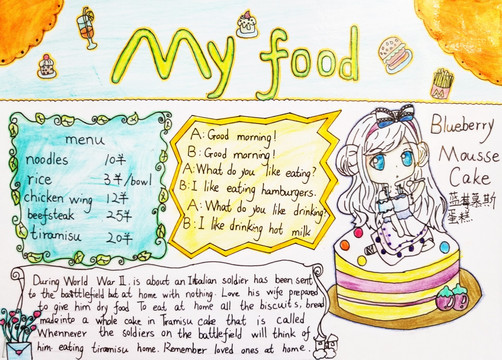 My food
menu
noodles 10羊
rice 3羊/bowl
chicken wing 12羊
beefsteak 25羊
tiramisu 20羊
A: Good morning!
B: Good morning!
A: What do you like eating?
B: I like eating hamburgers.
A: What do you like drinking?
B: I like drinking hot milk
Blueberry
Mousse
Cake
蓝莓慕斯
蛋糕
During World War II. is about an Itialian soldier has been sent
to the batttlefield but at home with nothing. Love his wife prepared
to give him dry food To eat at home all the biscuits, bread
made into a whole cake in Tramisu cake that is called
Whennever the soldiers on the battlefield will think of
him eating tiramisu home. Remember loved ones at home.